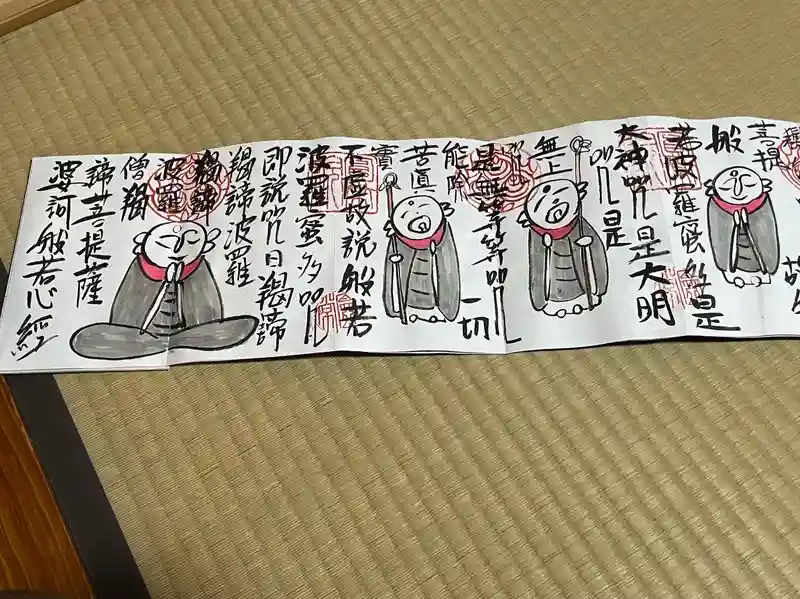 故
菩提
般
若波羅蜜多是
大神咒是大明
咒是
無上
咒
是無等等咒
一切
能除
苦真
實
不虚故説般若
波羅蜜多咒
即説咒曰羯諦
羯諦波羅
羯諦
波羅
僧羯
諦菩提薩
婆訶般若心経